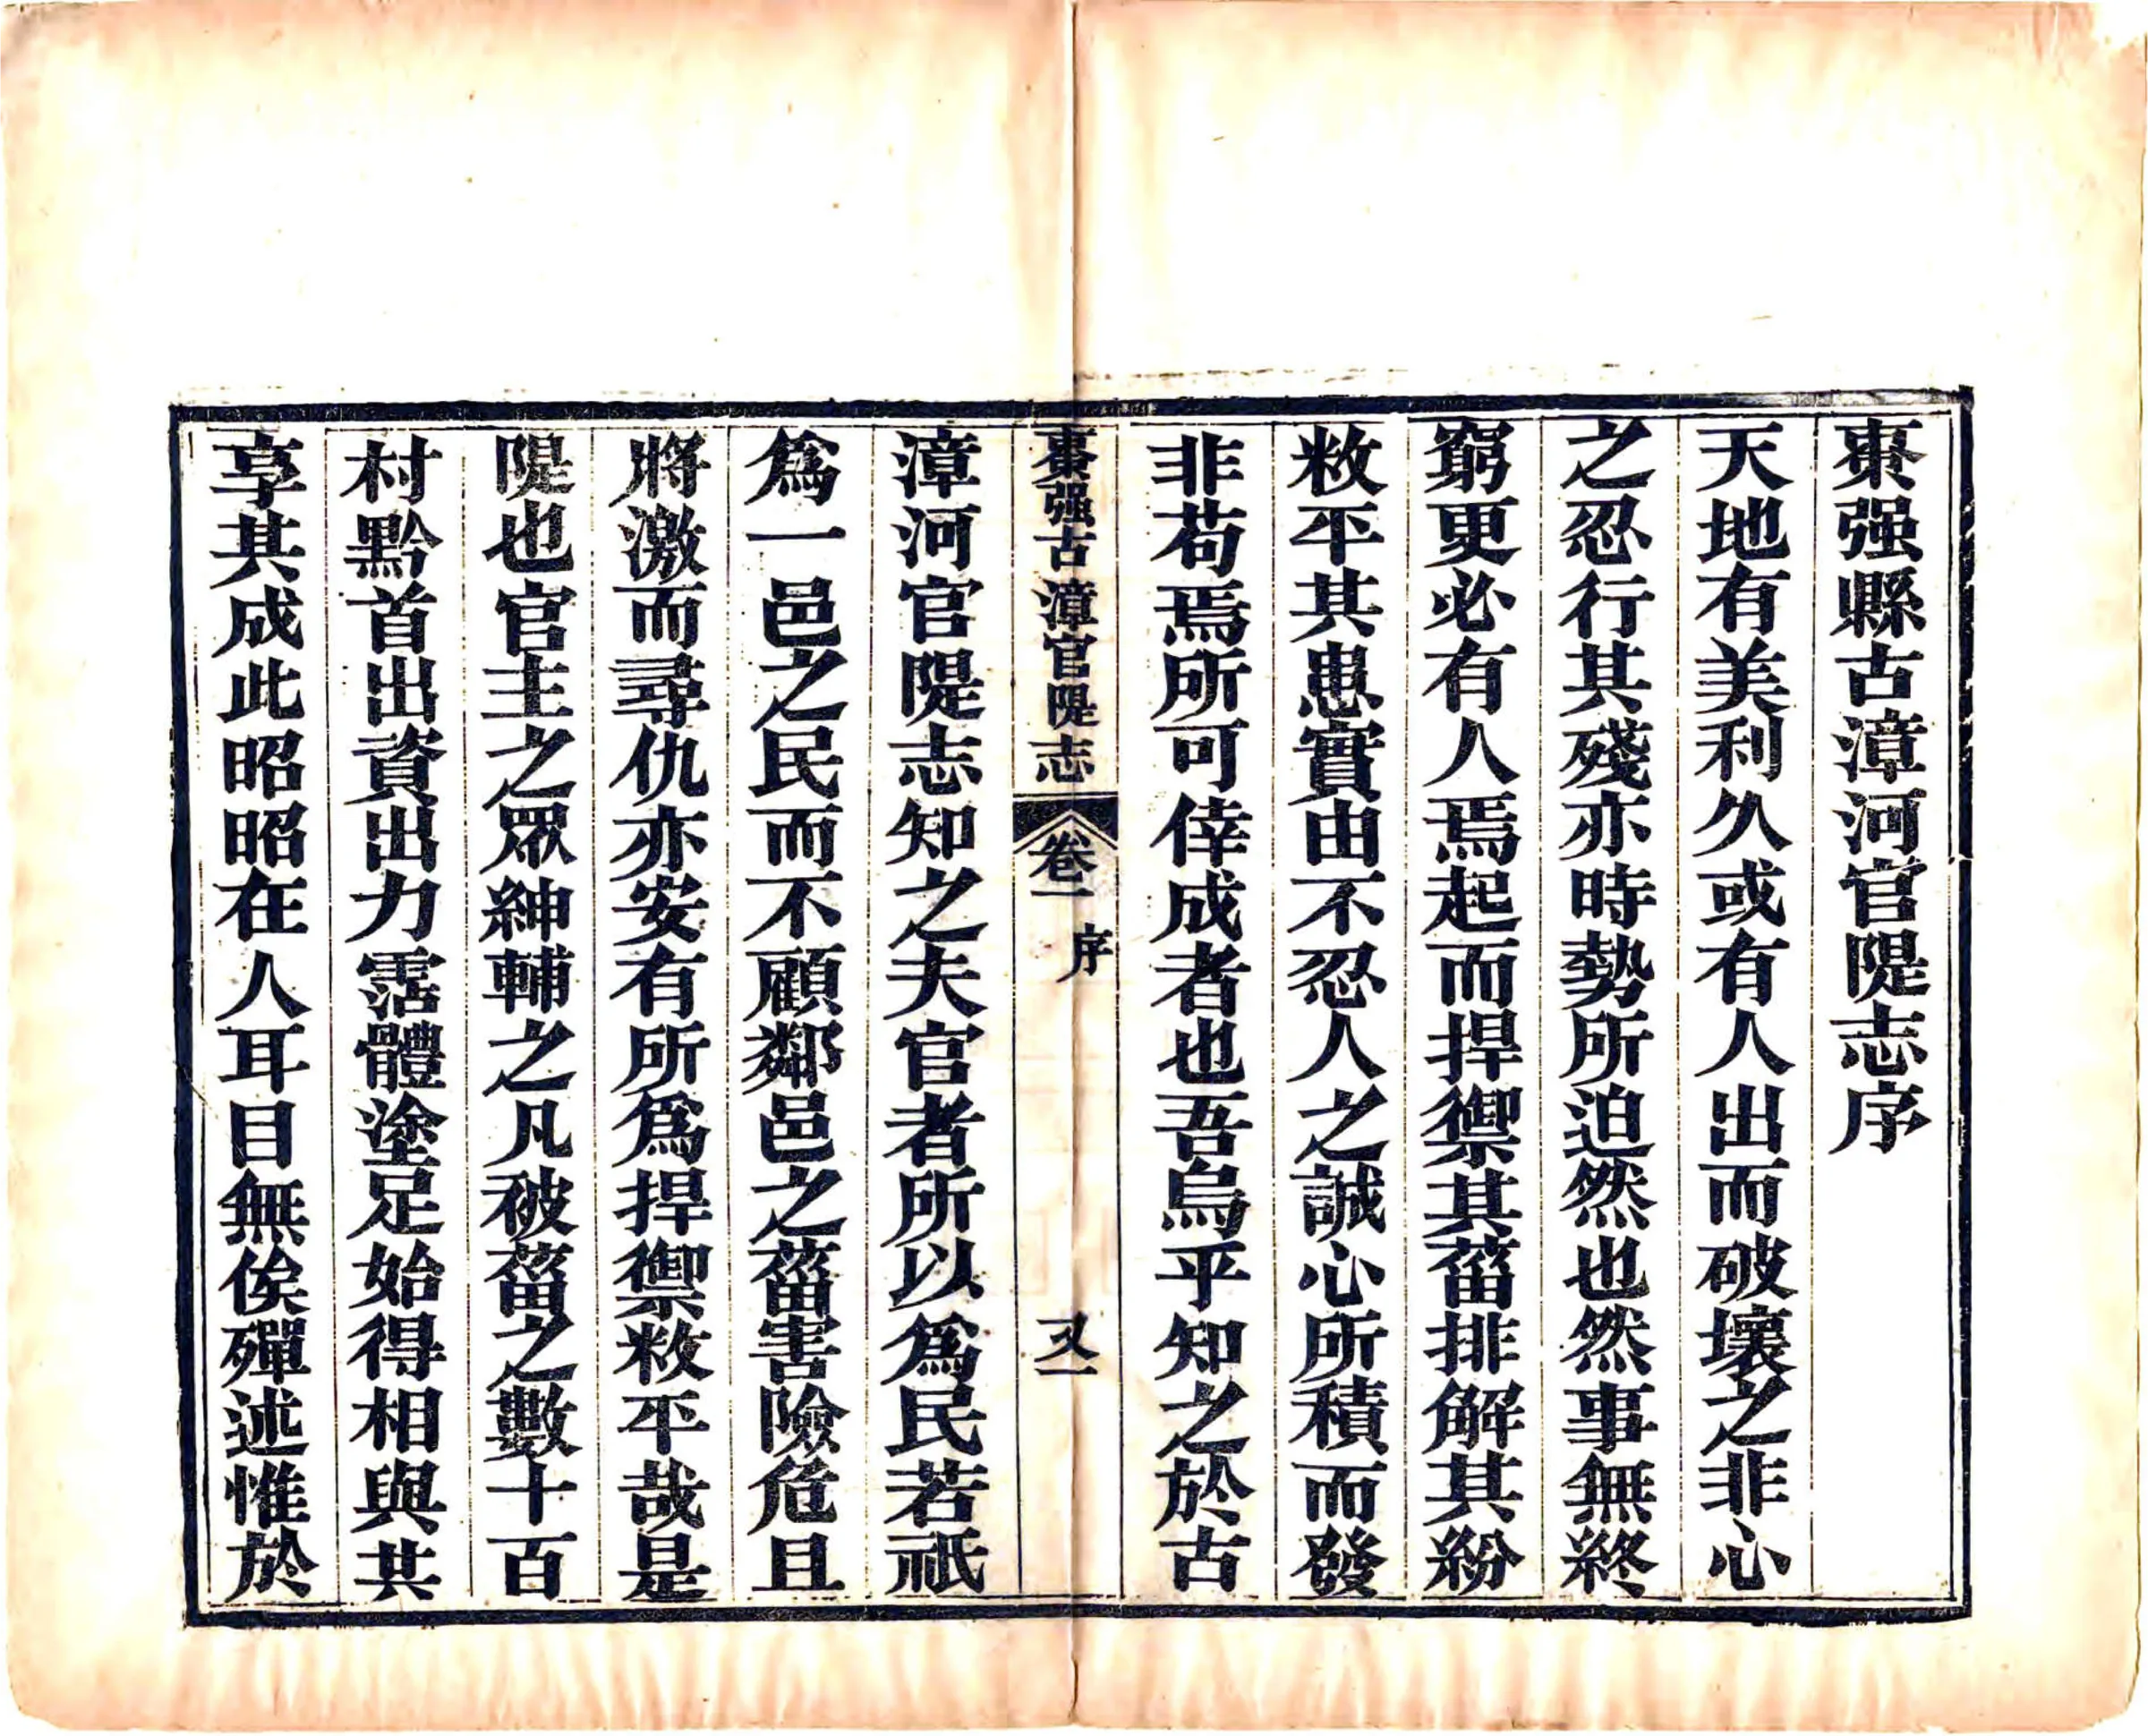 棗强縣古漳河官隄志序
天地有美利久或有人出而破壞之非心
之忍行其殘亦時勢所迫然也然事無終
窮更必有人焉起而捍禦其菑排解其紛
敉平其患實由不忍人之誠心所積而發
非苟焉所可倖成者也吾烏乎知之於古
棗强古漳官隄志 卷一 序 又一
漳河官隄志知之夫官者所以爲民若祇
爲一邑之民而不顧鄰邑之菑害險危且
將激而尋仇亦安有所爲捍禦敉平哉是
隄也官主之眾紳輔之凡被菑之數十百
村黔首出資出力霑體塗足始得相與共
享其成此昭昭在人耳目無俟殫述惟於